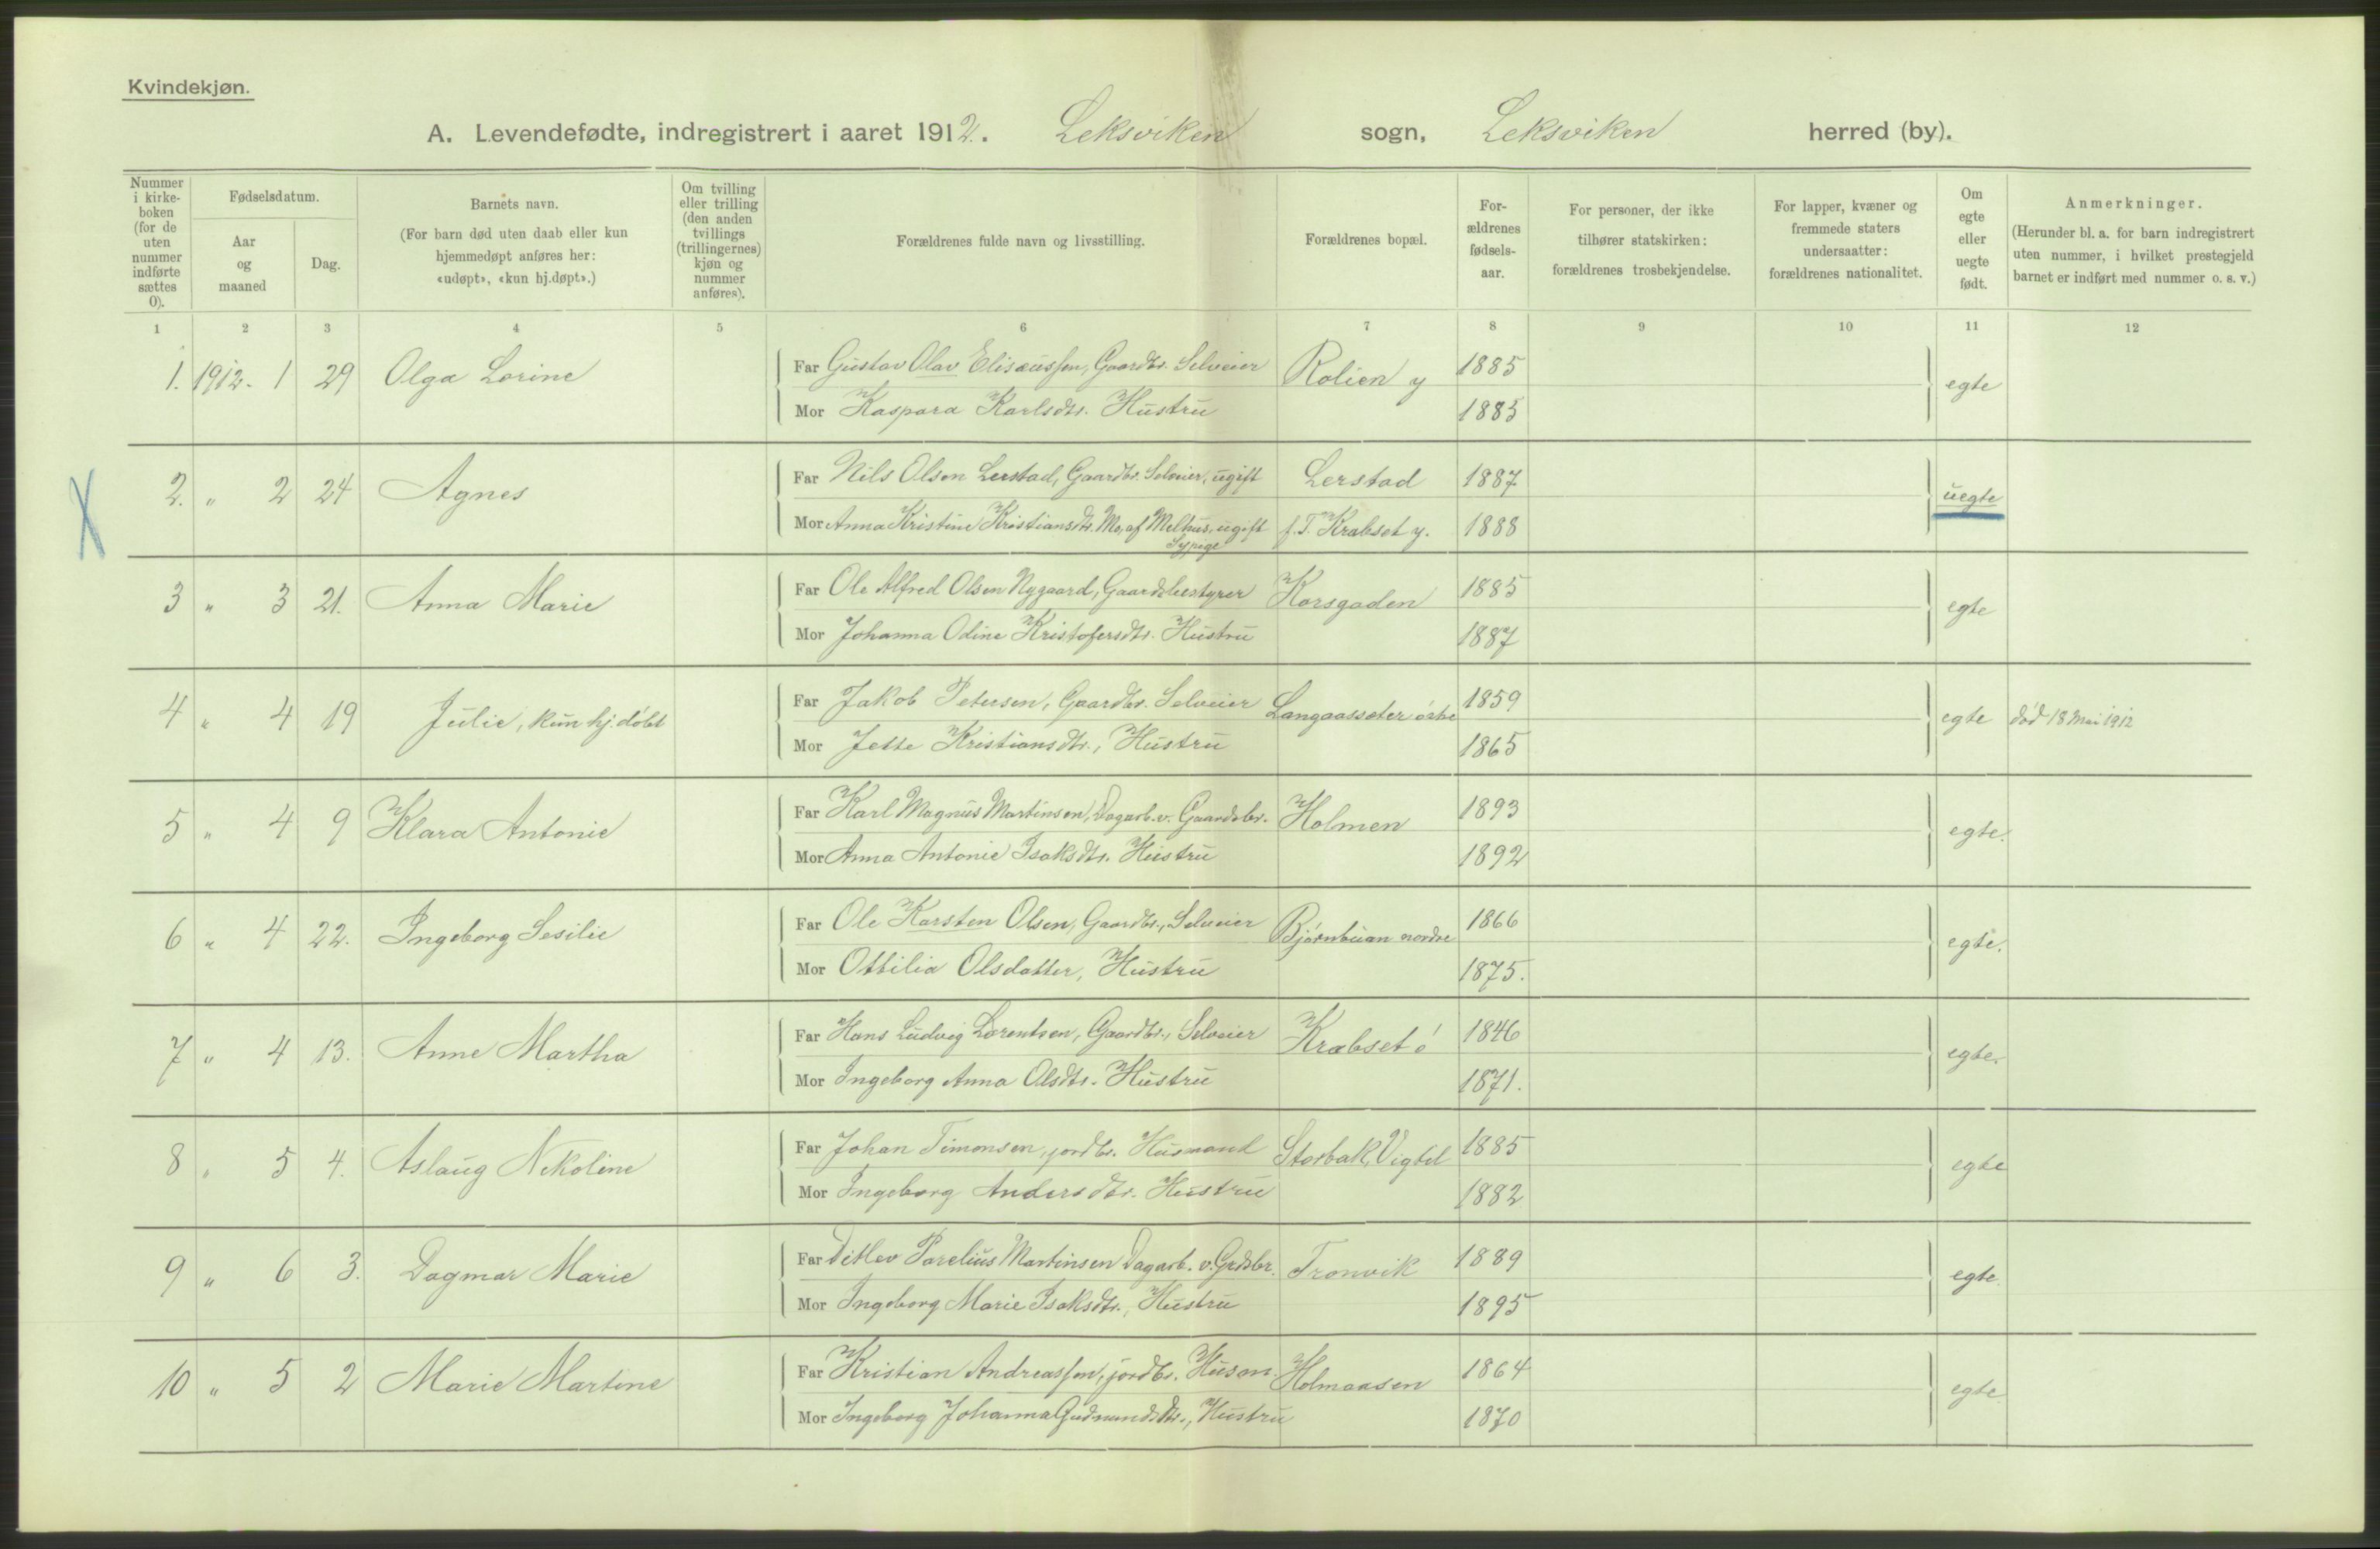 Kvindekjøn.
A. Levendefødte, indregistrert i aaret 1912. Leksviken sogn, Leksviken herred (by).
Nummer i kirkeboken (for de uten nummer indførte sættes 0).
Fødselsdatum.
Aar og maaned
Dag.
Barnets navn.
(For barn død uten daab eller kun hjemmedøpt anføres her: «udøpt», «kun hj.døpt».)
Om tvilling eller trilling (den anden tvillings (trillingernes) kjøn og nummer anføres).
Forældrenes fulde navn og livsstilling.
Forældrenes bopæl.
Forældrenes fødselsaar.
For personer, der ikke tilhører statskirken: forældrenes trosbekjendelse.
For lapper, kvæner og fremmede staters undersaatter: forældrenes nationalitet.
Om egte eller uegte født.
Anmerkninger.
(Herunder bl. a. for barn indregistrert uten nummer, i hvilket prestegjeld barnet er indført med nummer o. s. v.)
1 2 3 4 5 6 7 8 9 10 11 12
1. 1912. 1 29 Olga Lorine Far Gustav Olav Elisæussen, Gaardbr. Selveier Rolien y 1885 egte
Mor Kaspara Karlsdtr. Hustru 1885
X 2. " 2 24 Agnes Far Nils Olsen Lerstad, Gaardbr. Selveier, ugift Lerstad 1887 uegte
Mor Anna Kristine Kristiansdtr. Mo, af Melhus, ugift f. T. Krabset y. 1888
Sypige
3 " 3 21. Anna Marie Far Ole Alfred Olsen Nygaard, Gaardsbestyrer Korsgaden 1885 egte
Mor Johanna Odine Kristofersdtr. Hustru 1887
4 " 4 19 Julie, kun hj. døbt Far Jakob Petersen, Gaardbr. Selveier Langaasseter østre 1859 egte død 18 Mai 1912
Mor Jette Kristiansdtr., Hustru 1865
5 " 4 9 Klara Antonie Far Karl Magnus Martinsen, Dagarb. v. Gaardsbr. Holmen 1893 egte.
Mor Anna Antonie Isaksdtr. Hustru 1892
6 " 4 22. Ingeborg Sesilie Far Ole Karsten Olsen, Gaardbr., Selveier Bjørnbuan nordre 1866 egte.
Mor Ottilia Olsdatter, Hustru 1875.
7 " 4 13. Anne Martha Far Hans Ludvig Lorentsen, Gaardbr., Selveier Krabset ø 1846 egte.
Mor Ingeborg Anna Olsdtr. Hustru 1871.
8 " 5 4. Aslaug Nikoline Far Johan Timonsen, jordbr. Husmand Storbak, Vigtil 1885 egte
Mor Ingeborg Andersdtr. Hustru 1882
9 " 6 3. Dagmar Marie Far Ditlev Parelius Martinsen Dagarb. v. Grdsbr. Tronvik 1889 egte.
Mor Ingeborg Marie Isaksdtr., Hustru 1895
10 " 5 2 Marie Martine Far Kristian Andreassen, jordbr. Husm. Holmaasen 1864 egte
Mor Ingeborg Johanna Gudmundsdtr., Hustru 1870